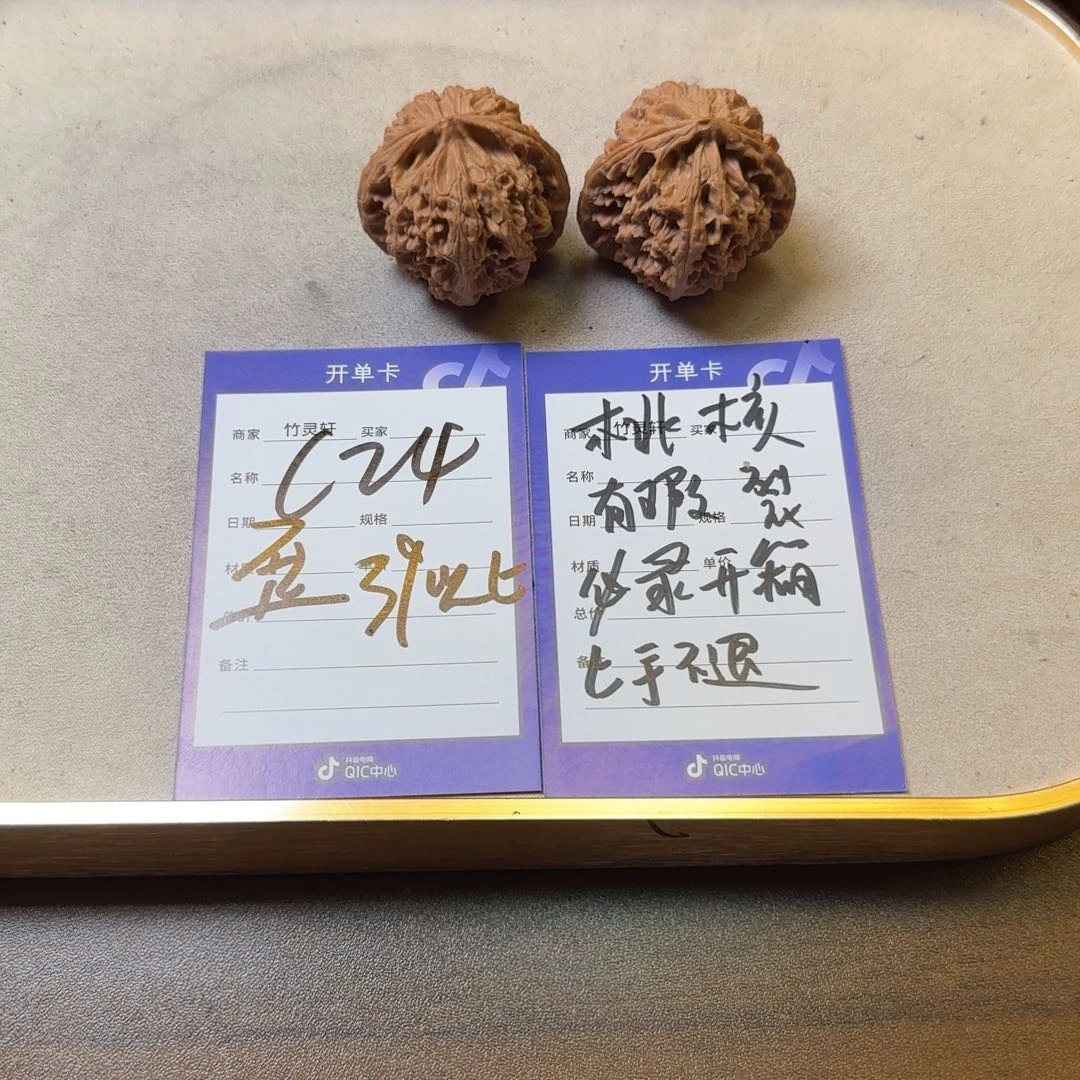 开单卡
商家 竹灵轩 买家
C24
名称
日期 规格
歪 39以上
备注
抖音电商
QIC中心
开单卡
商家 竹灵轩 买家
桃核
名称
有瑕 裂
日期 规格
材质 单价
必录开箱
总价
上手不退
抖音电商
QIC中心